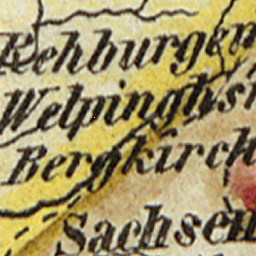 Rehburgen
Welpinghsi
Bergkirch
Sachsen